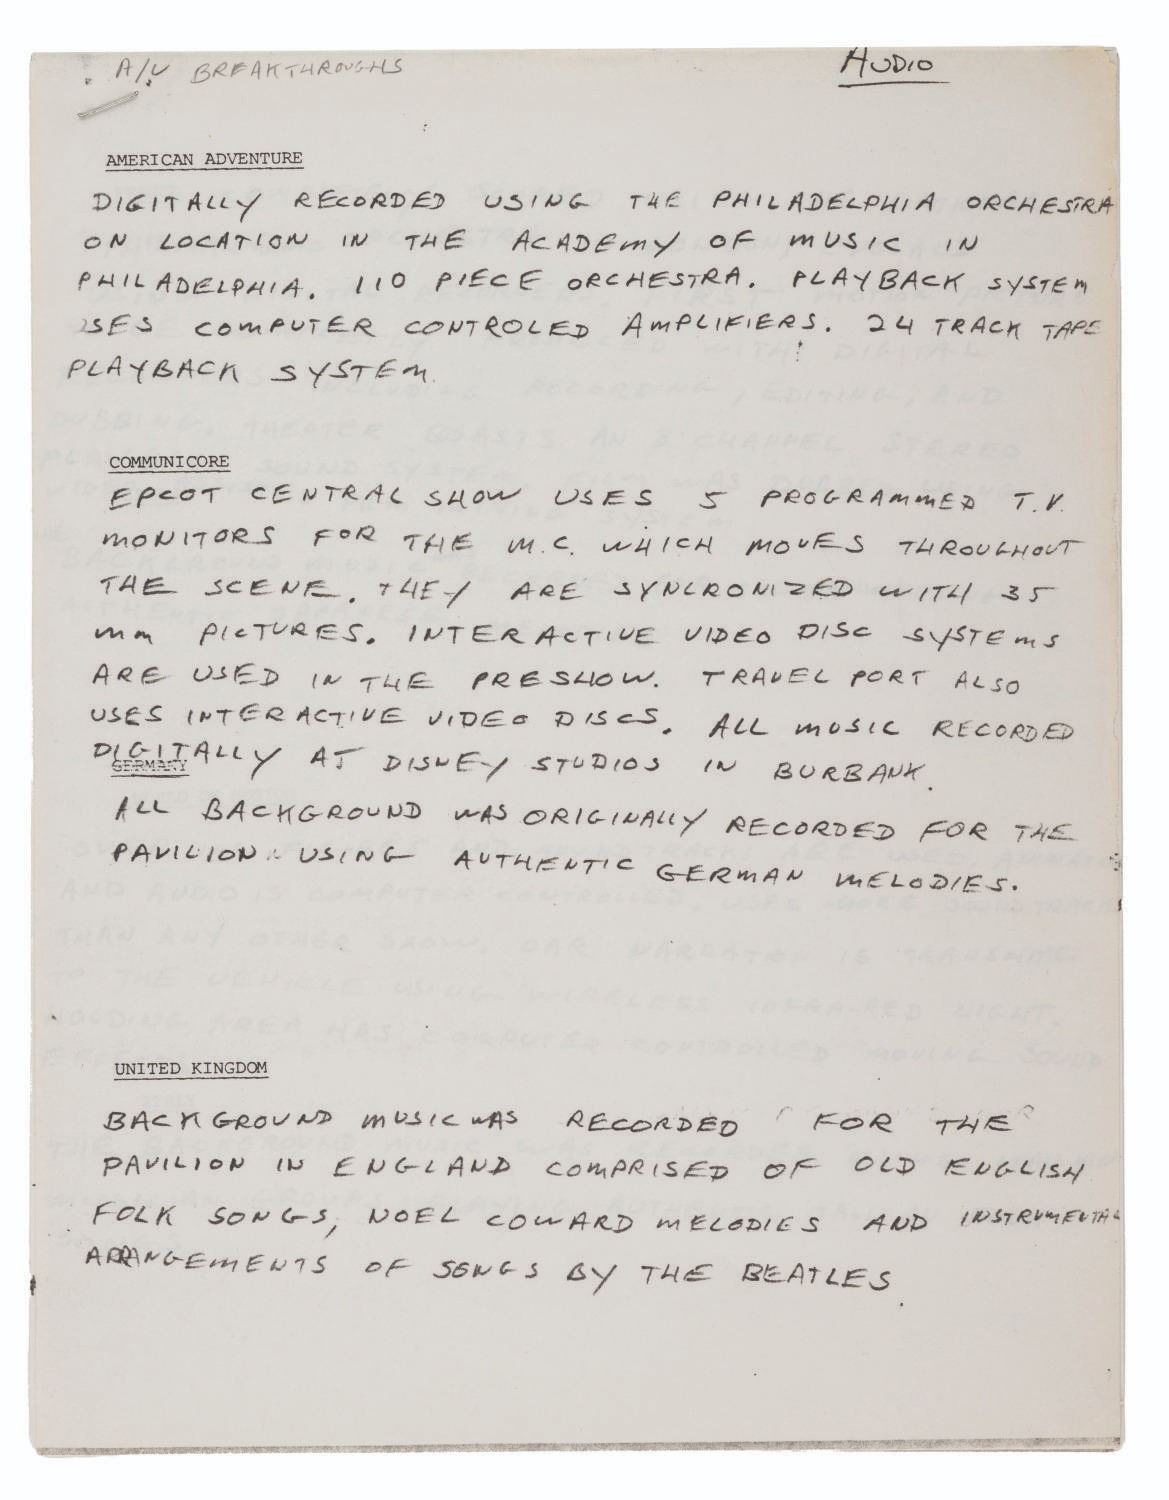 A/V BREAKTHROUGHS
AUDIO
AMERICAN ADVENTURE
DIGITALLY RECORDED USING THE PHILADELPHIA ORCHESTRA
ON LOCATION IN THE ACADEMY OF MUSIC IN
PHILADELPHIA. 110 PIECE ORCHESTRA. PLAYBACK SYSTEM
USES COMPUTER CONTROLED AMPLIFIERS. 24 TRACK TAPE
PLAYBACK SYSTEM.
COMMUNICORE
EPCOT CENTRAL SHOW USES 5 PROGRAMMED T.V.
MONITORS FOR THE M.C. WHICH MOVES THROUGHOUT
THE SCENE. THEY ARE SYNCRONIZED WITH 35
mm PICTURES. INTERACTIVE VIDEO DISC SYSTEMS
ARE USED IN THE PRESHOW. TRAVEL PORT ALSO
USES INTERACTIVE VIDEO DISCS. ALL MUSIC RECORDED
DIGITALLY AT DISNEY STUDIOS IN BURBANK.
GERMANY
ALL BACKGROUND WAS ORIGINALLY RECORDED FOR THE
PAVILION USING AUTHENTIC GERMAN MELODIES.
UNITED KINGDOM
BACKGROUND MUSIC WAS RECORDED FOR THE
PAVILION IN ENGLAND COMPRISED OF OLD ENGLISH
FOLK SONGS, NOEL COWARD MELODIES AND INSTRUMENTAL
ARRANGEMENTS OF SONGS BY THE BEATLES.